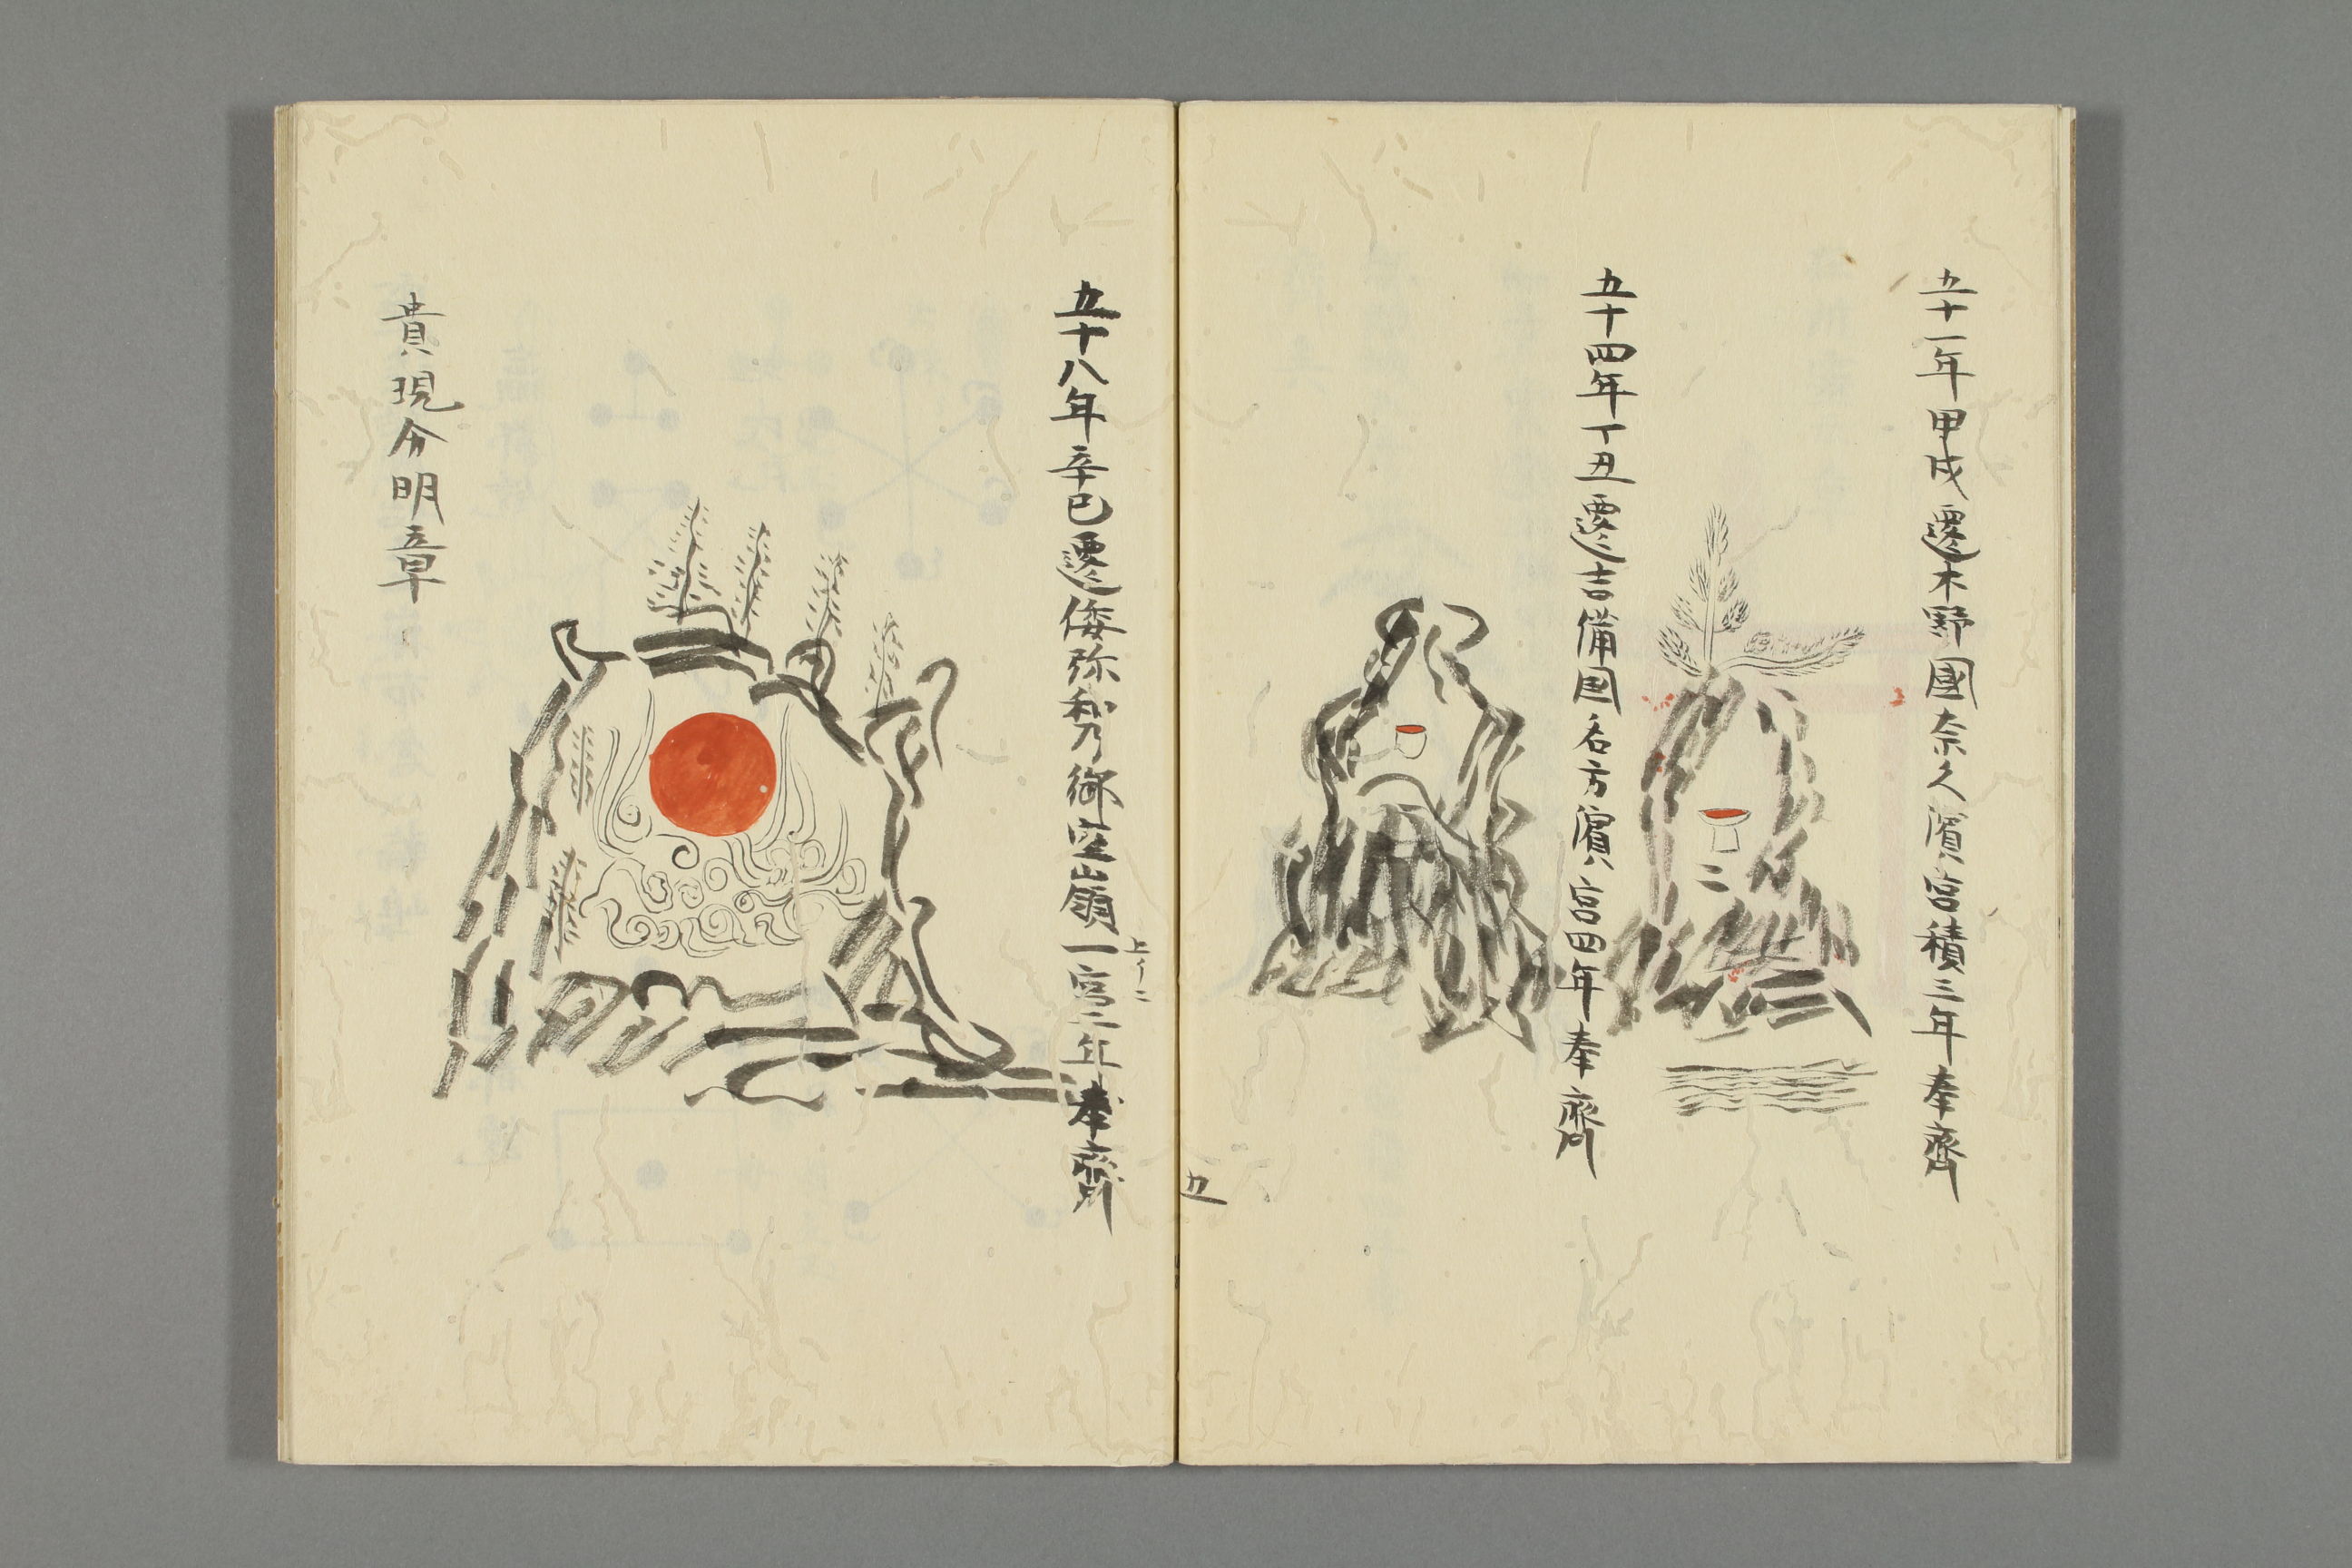 五十一年甲戌遷木野國奈久濱宮積三年奉齊
五十四年丁丑遷吉備国名方濱宮四年奉齊
五
五十八年辛巳遷倭弥和乃御室嶺一宮二年奉齊
上イニ
貴現分明章